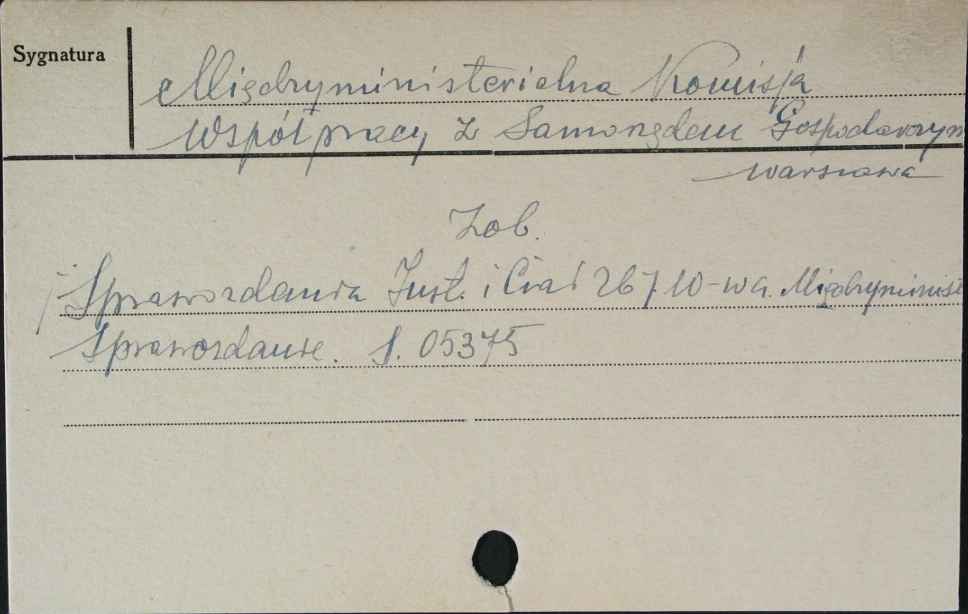 Sygnatura
Międzyministerialna Komisja
Współpracy z Samorządem Gospodarczym
Warszawa
Zob.
Sprawozdania Inst. i Ciał Zb / 10-wa. Międzyminist
Sprawozdanie. S. 05375